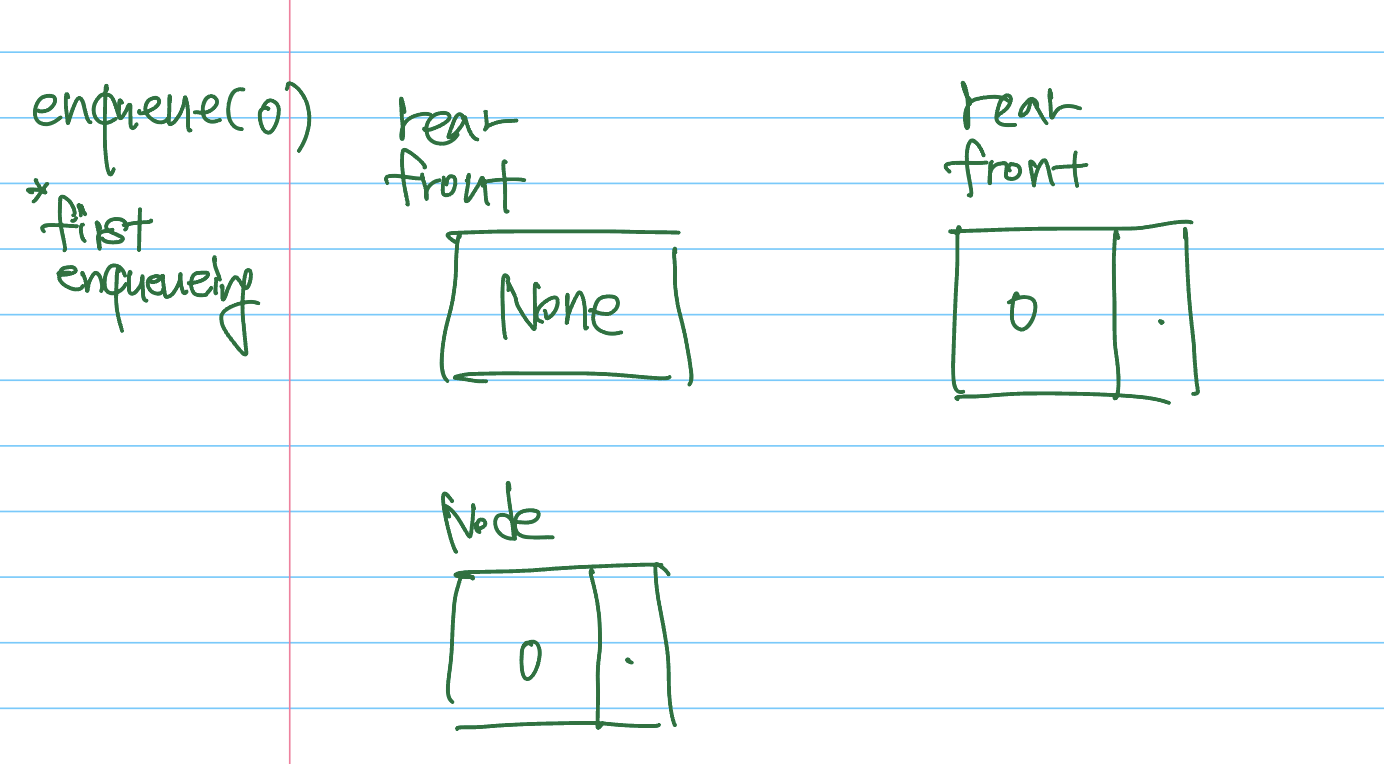 enqueue(0)
* first
enqueueing
rear
front
None
Node
0 .
rear
front
0 .